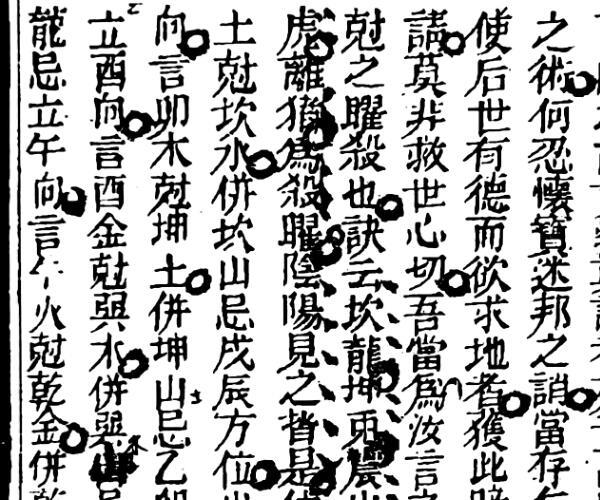 之術何忍懷寶迷邦之誚當存
使后世有德而欲求地者獲此
講莫非救世心切吾當爲汝言
尅之曜殺也訣云坎龍坤兎震
虎離猪爲殺曜陰陽見之皆是
土尅坎水併坎山忌戌辰方位
向言卯木尅坤土併坤山忌乙
立酉向言酉金尅巽木併巽
龍忌立午向言午火尅乾金併